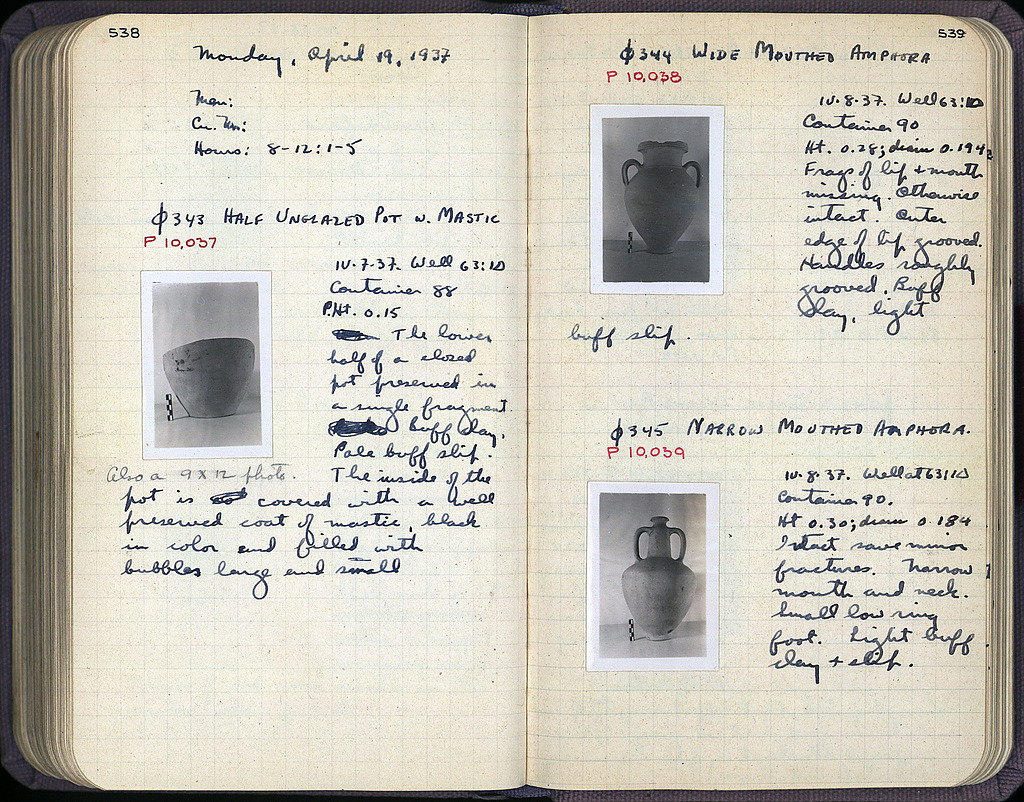 538
Monday, April 19, 1937
Men:
Cu. Ms:
Hours: 8-12:1-5
ϕ343 HALF UNGLAZED POT W. MASTIC
P 10,037
IV.7.37. Well 63:ΙΔ
Container 88
P.Ht. 0.15
The lower
half of a closed
pot preserved in
a single fragment.
Buff clay.
Pale buff slip.
Also a 9 x 12 photo. The inside of the
pot is covered with a well
preserved coat of mastic, black
in color and filled with
bubbles large and small
539
ϕ344 WIDE MOUTHED AMPHORA
P 10,038
IV.8.37. Well 63:ΙΔ
Container 90
Ht. 0.28; diam 0.194
Frags of lip + mouth
missing. Otherwise
intact. Outer
edge of lip grooved.
Handles roughly
grooved. Buff
clay, light
buff slip.
ϕ345 NARROW MOUTHED AMPHORA.
P 10,039
IV.8.37. Well at 63:ΙΔ
Container 90.
Ht 0.30; diam 0.184
Intact save minor
fractures. Narrow
mouth and neck.
Small low ring
foot. Light buff
clay + slip.